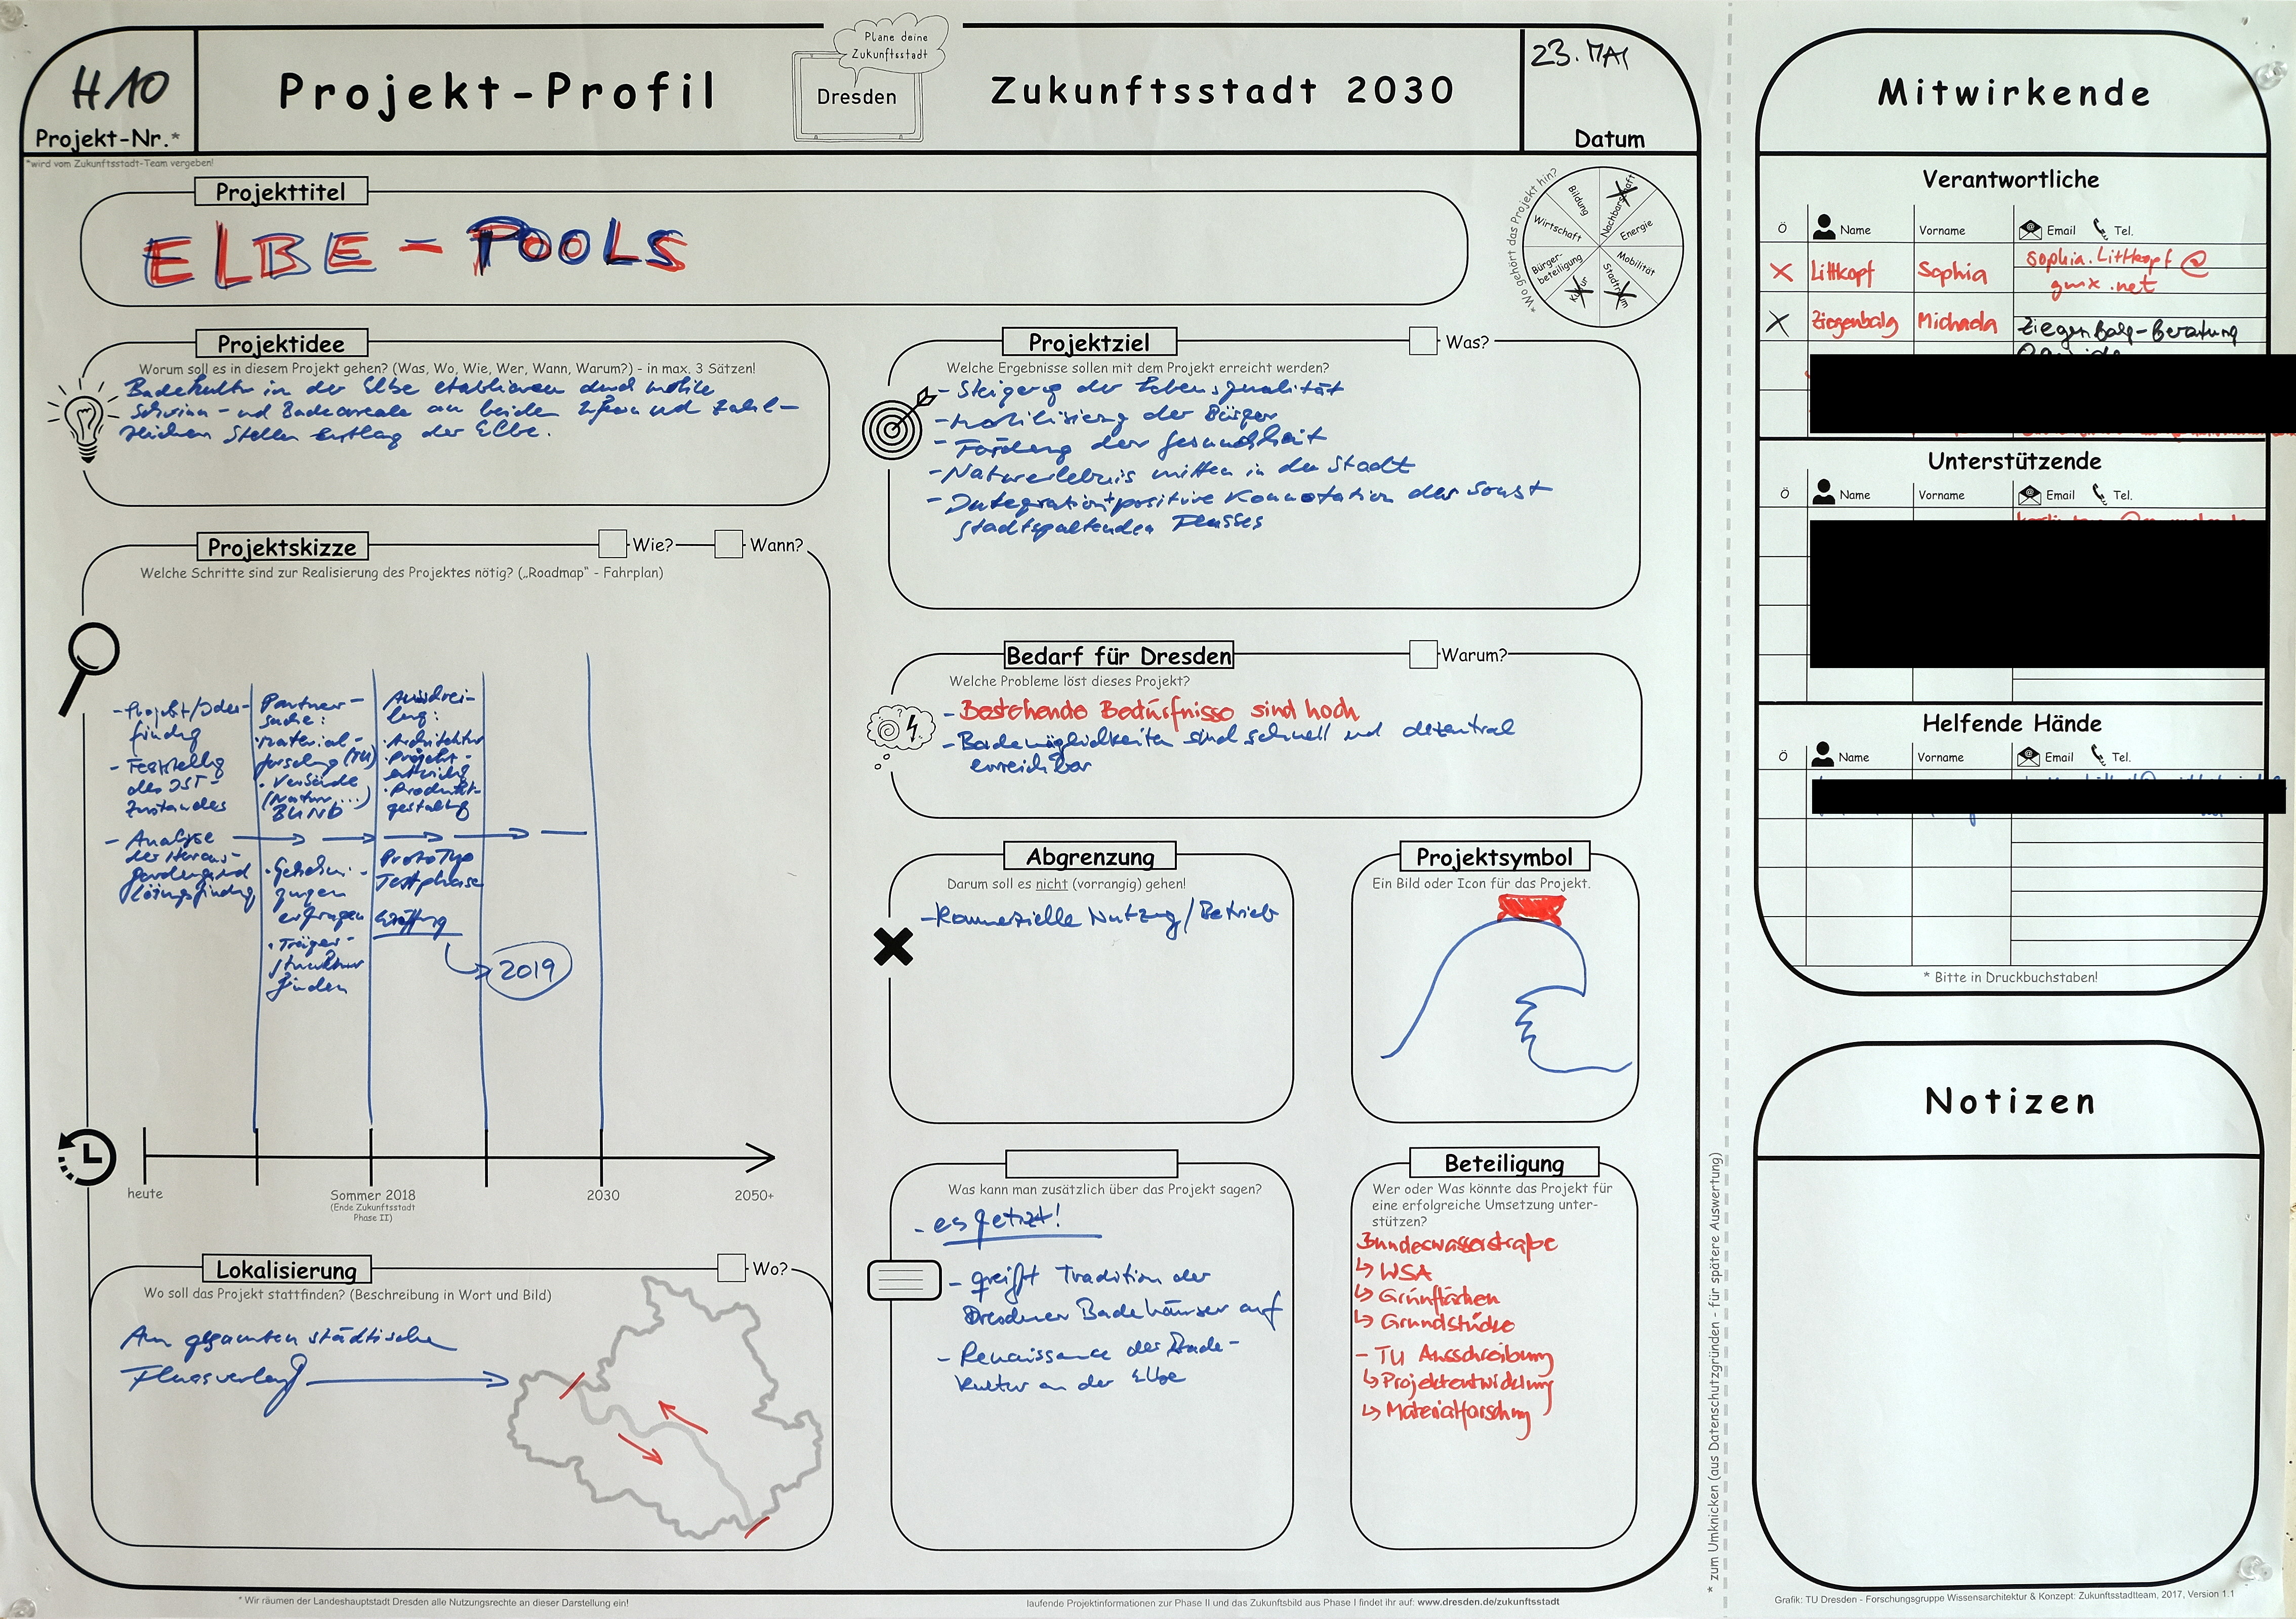 H10
Projekt-Nr.*
*wird vom Zukunftsstadt-Team vergeben!
Projekt-Profil
Plane deine
Zukunftsstadt
Dresden
Zukunftsstadt 2030
23. MAI
Datum
Projekttitel
ELBE - POOLS
*Wo gehört das Projekt hin?
Bildung
Nachbarschaft
Wirtschaft
Energie
Bürger-
beteiligung
Mobilität
Kultur
Stadtraum
Projektidee
Worum soll es in diesem Projekt gehen? (Was, Wo, Wie, Wer, Wann, Warum?) - in max. 3 Sätzen!
Badekultur in der Elbe etablieren durch mobile
Schwimm- und Badeareale an beiden Ufern und zahl-
reichen Stellen entlang der Elbe.
Projektziel
Was?
Welche Ergebnisse sollen mit dem Projekt erreicht werden?
- Steigerung der Lebensqualität
- Mobilisierung der Bürger
- Förderung der Gesundheit
- Naturerlebnis mitten in der Stadt
- Integration + positive Konnotation des sonst
stadtspaltenden Flusses
Projektskizze
Wie?
Wann?
Welche Schritte sind zur Realisierung des Projektes nötig? („Roadmap" - Fahrplan)
- Projekt/Ideen-
findung
- Feststellg
des IST-
Zustandes
- Analyse
der Heraus-
forderung und
Lösungsfindung
Partner-
suche:
· Material-
forschung (TU)
· Verbände
(Natur...)
BUND
· Genehmi-
gungen
erfragen
· Träger-
struktur
finden
Ausschrei-
bung:
· Architektur
· Projekt-
entwicklg
· Produkt-
gestaltg
Prototyp
Testphase
Eröffnung
2019
heute
Sommer 2018
(Ende Zukunftsstadt
Phase II)
2030
2050+
Bedarf für Dresden
Warum?
Welche Probleme löst dieses Projekt?
- Bestehende Bedürfnisse sind hoch
- Bademöglichkeiten sind schnell und dezentral
erreichbar
Abgrenzung
Darum soll es nicht (vorrangig) gehen!
- Kommerzielle Nutzung/Betrieb
Projektsymbol
Ein Bild oder Icon für das Projekt.
Lokalisierung
Wo?
Wo soll das Projekt stattfinden? (Beschreibung in Wort und Bild)
Am gesamten städtischen
Flussverlauf
Was kann man zusätzlich über das Projekt sagen?
- es fetzt!
- greift Tradition der
Dresdner Badehäuser auf
- Renaissance der Bade-
kultur an der Elbe
Beteiligung
Wer oder Was könnte das Projekt für
eine erfolgreiche Umsetzung unter-
stützen?
Bundeswasserstraße
↳ WSA
↳ Grünflächen
↳ Grundstücke
- TU Ausschreibung
↳ Projektentwicklung
↳ Materialforschung
* Wir räumen der Landeshauptstadt Dresden alle Nutzungsrechte an dieser Darstellung ein!
laufende Projektinformationen zur Phase II und das Zukunftsbild aus Phase I findet ihr auf: www.dresden.de/zukunftsstadt
* zum Umknicken (aus Datenschutzgründen - für spätere Auswertung)
Mitwirkende
Verantwortliche
Ö Name Vorname Email Tel.
X Littkopf Sophia sophia.littkopf@
gmx.net
X Ziegenbalg Michaela Ziegenbalg-Beratung
Unterstützende
Ö Name Vorname Email Tel.
Helfende Hände
Ö Name Vorname Email Tel.
* Bitte in Druckbuchstaben!
Notizen
Grafik: TU Dresden - Forschungsgruppe Wissensarchitektur & Konzept: Zukunftsstadtteam, 2017, Version 1.1